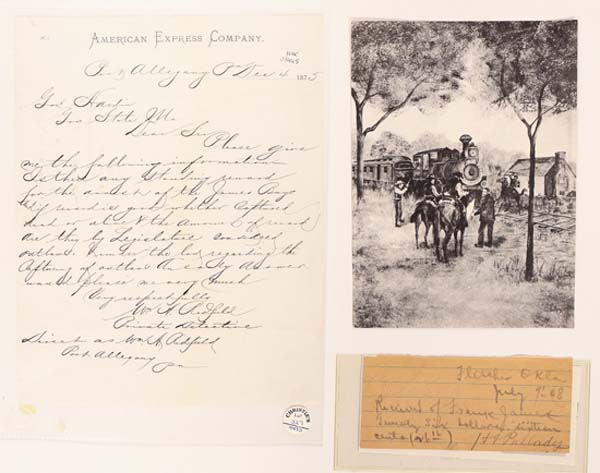 AMERICAN EXPRESS COMPANY.
Port Allegany Pa Dec 4 1875
Gov Hardin
State Mo
Dear Sir
Please give
me the following information
Is there any standing reward
for the arrest of the James Boys
& if reward is given whether captured
dead or alive & the amount of reward
are they by Legislature considered
outlaws. & under the law regarding the
capturing of outlaws An early answer
would please me very much
Very respectfully
Wm A Redfield
Private Detective
Direct as Wm A Redfield
Port Allegany
Pa
CHRISTIE'S
LOT
Fletcher Okla
July 9. 08
Received of Frank James
Twenty Six dollars sixteen
cents